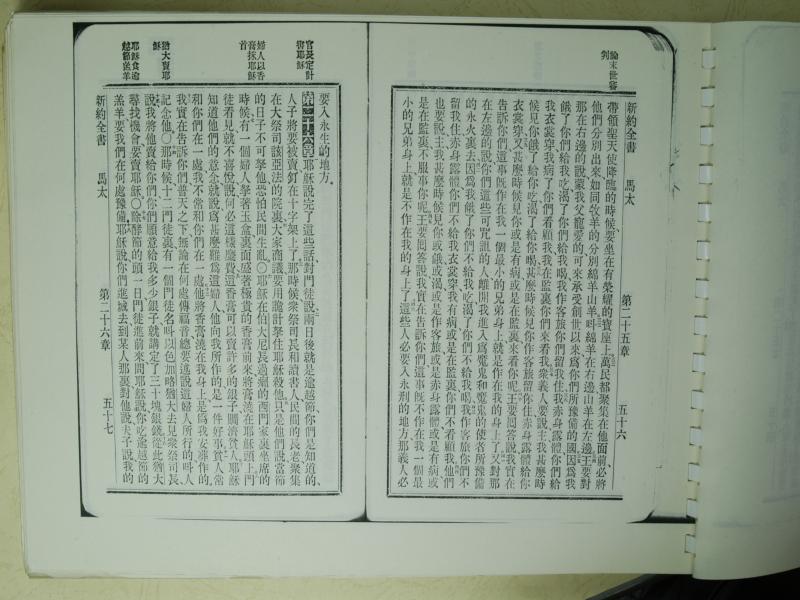 新約全書 馬太 第二十五章 五十六
論末世審
判
帶領聖天使降臨的時候、要坐在有榮耀的寶座上萬民都聚集在他面前必將
他們分別出來如同牧羊的分別綿羊山羊呌綿羊在右邊山羊在左邊王要對
那在右邊的說蒙我父寵愛的可來承受創世以來爲你們所豫備的國因爲我
餓了你們給我吃渴了你們給我喝我作客旅你們留我住我赤身露體你們給
我衣裳穿我病了你們看顧我我在監裏你們來看我衆義人要說主我甚麼時
候見你餓了給你吃渴了給你喝甚麼時候見你作客旅留你住赤身露體給你
衣裳穿又甚麼時候見你或是有病或是在監裏來看你呢王要囘答說我實在
告訴你們這事旣作在我一個最小的兄弟身上就是作在我的身上了又對那
在左邊的說你們這些可咒詛的人離開我進入爲魔鬼和魔鬼的使者所豫備
的永火裏去因爲我餓了你們不給我吃渴了你們不給我喝我作客旅你們不
留我住赤身露體你們不給我衣裳穿我有病或是在監裏你們不看顧我他們
也要說主我甚麼時候見你或餓或渴或是作客旅或是赤身露體或是有病或
是在監裏不服事你呢王要囘答說我實在告訴你們這事旣不作在我一個最
小的兄弟身上就是不作在我的身上了這些人必要入永刑的地方那義人必
要入永生的地方。
官長定計
害耶穌
第二十六章耶穌說完了這些話、對門徒說兩日後就是逾越節你們是知道的、
人子將要被賣釘在十字架上了那時候衆祭司長和讀書人民間的長老聚集
在大祭司該亞法的院裏大家商議要用詭計拏住耶穌殺他只是他們說當節
的日子不可拏他恐怕民間生亂〇耶穌在伯大尼長過癩的西門家裏坐席的
婦人以香
膏抹耶穌
首
時候有一個婦人拏著玉盒裏面盛著極貴的香膏前來將膏澆在耶穌頭上門
徒看見就不喜悅說何必這樣糜費這香膏可以賣許多的銀子賙濟貧人耶穌
知道他們的意念就說爲甚麼難爲這婦人他向我所作的是一件好事貧人常
和你們在一處我不常和你們在一處他將香膏澆在我身上是爲我安葬作的
我實在告訴你們普天之下無論在何處傳福音總要述說這婦人所行的呌人
猶大賣耶
穌
記念他〇那時候十二門徒裏有一個門徒名呌以色加略猶大去見衆祭司長
說我將他賣給你們你們願意給我多少銀子就講定了三十塊銀錢從此猶大
耶穌食逾
越節羔羊
尋找機會要賣耶穌〇除酵節的頭一日門徒進前來問耶穌說你吃逾越節的
羔羊要我們在何處豫備耶穌說你們進城去到某人那裏對他說夫子說我的
新約全書 馬太 第二十六章 五十七